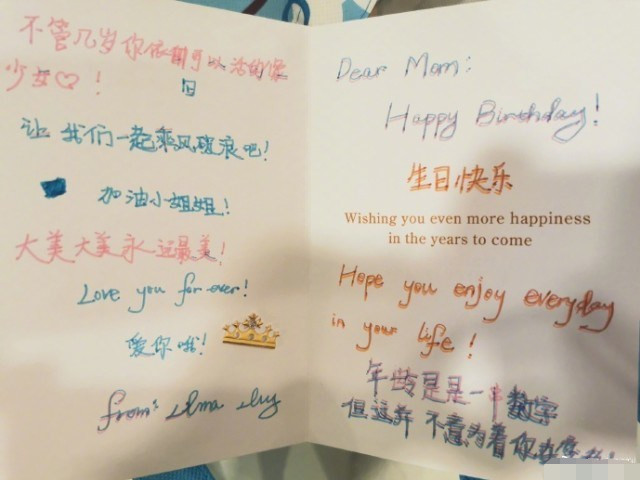 不管几岁你依旧可以活的像
少女♡！
让我们一起乘风破浪吧！
加油小姐姐！
大美大美永远最美！
Love you for ever!
爱你哦！
from:
Dear Mom:
Happy Birthday!
生日快乐
Wishing you even more happiness
in the years to come
Hope you enjoy everyday
in your life!
年龄是是一串数字
但这并不意为着你